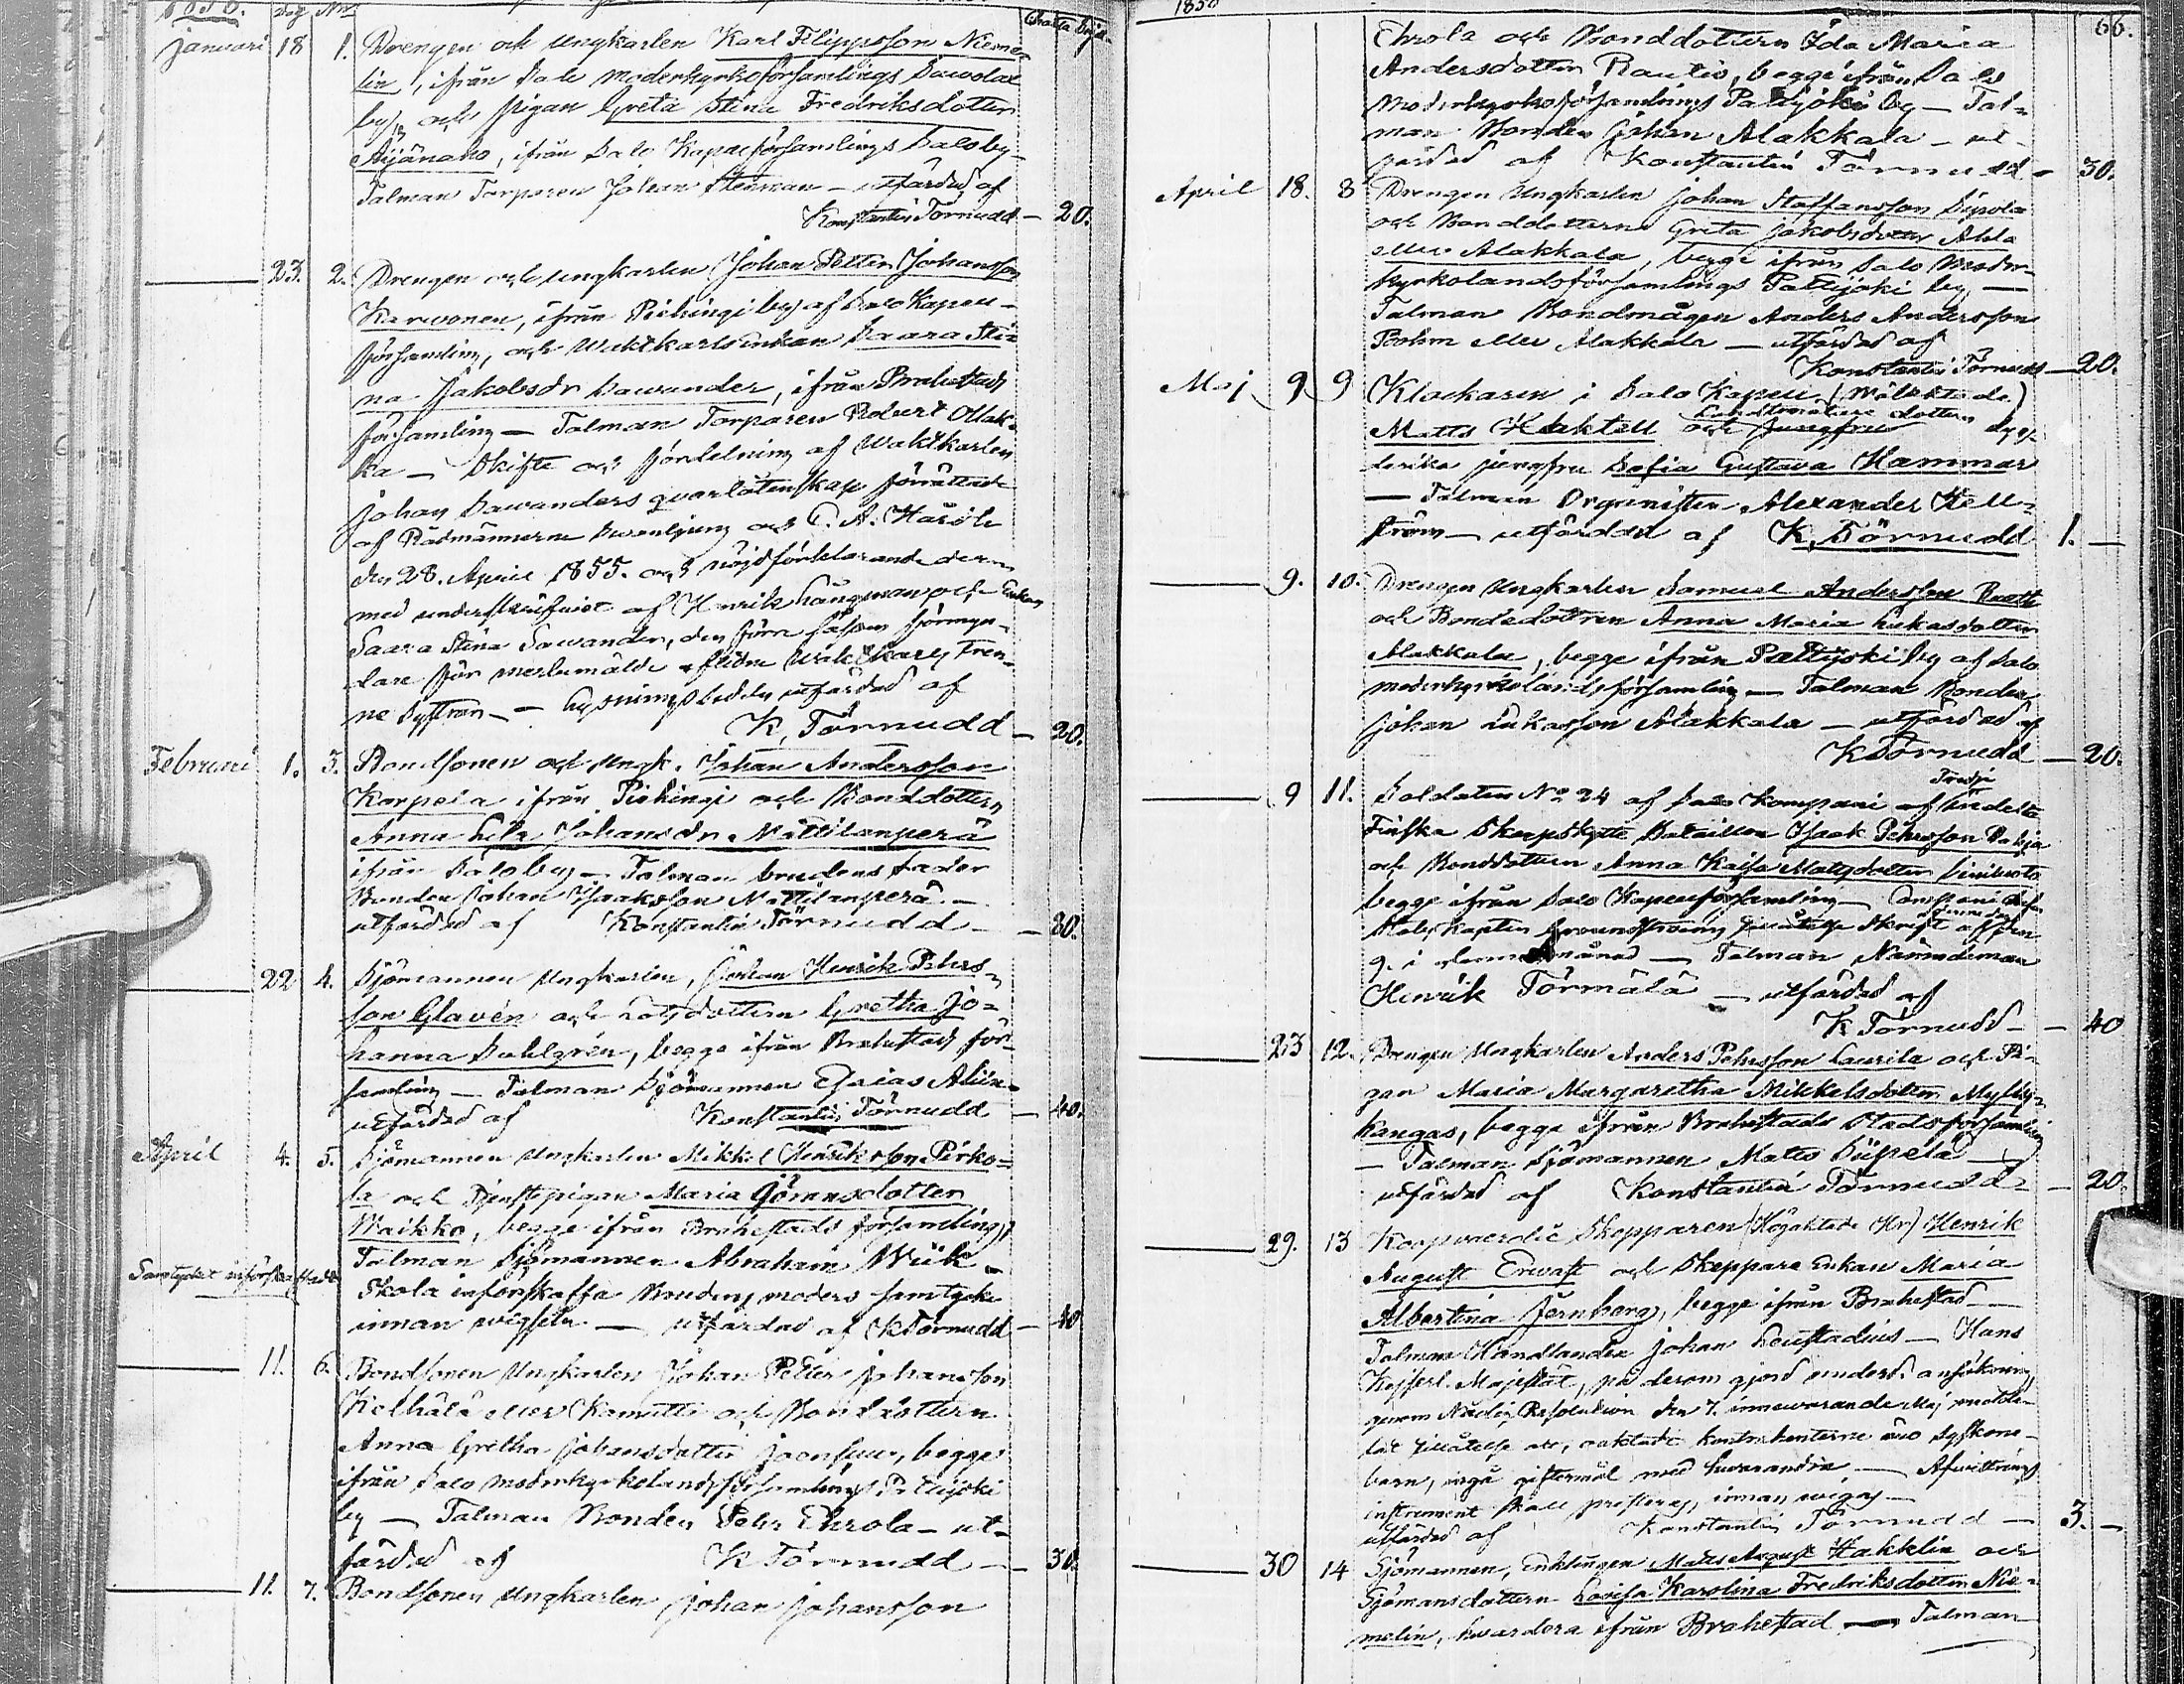 Januari 18 1. Drengen och Ungkarlen Karl Filippsson Nieme-
lin, ifrån Salo moderkyrkoförsamlings Sawolax
by, och pigan Greta Stina Fredriksdotter
Äijänaho, ifrån Salo Kapellförsamlings Saloby
Talman Torparen Johan Stenman – utfärdad af
Konstantin Törnudd – 20.
23. 2. Drengen och Ungkarlen Johan Petter Johansson
Karwonen, ifrån Piehingi by af Salo Kapell-
församling, och Waktkarlsenkan Saara Sti-
na Jakobsdr Sawander, ifrån Brahestads
församling – Talman Torparen Robert Ollak-
ka – Skifte och fördelning af Waktkarlen
Johan Sawanders qvarlåtenskap förrättad
af Rådmännerne Swanljung och
den 28. April 1855. och nöjdförklarande derm
med underskrifvit af Henrik Långman och Enkan
Saara Stina Sawander, den förre såsom förmyn-
dare för merbemälde aflidne Waktkarls
ne – Lysningssedeln utfärdad af
K. Törnudd – 20.
Februari 1. 3. Bondsonen och Ungk. Johan Andersson
Korpela ifrån Piehingi och Bonddottern
Anna Lisa Johansdr Mattilanperä
ifrån Saloby – Talman brudens fader
Bonden Johan Isaaksson Mattilanperä –
utfärdad af Konstantin Törnudd – 30.
22 4. Sjömannen Ungkarlen, Johan Henrik Pehrs-
son Glavén och Lotsdottern Gretha Jo-
hanna Dahlgrén, begge ifrån Brahestads för-
samling – Talman Sjömannen Esaias
utfärdad af Konstantin Törnudd – 40.
April 4. 5. Sjömannen Ungkarlen Mikkel Henriksson Pirko-
la och Tjenstepigan Maria Göransdotter
Maikko, begge ifrån Brahestads församling,
Talman Sjömannen Abraham Wiik –
Samtycket införskaffadt
Skola införskaffa Brudens moders samtycke
innan vigseln – utfärdad af K Törnudd – 40
11. 6. Bondsonen Ungkarlen Johan Petter Johansson
Kelhälä eller Kamutti och Bonddottern
Anna Gretha Johansdotter Joensuu, begge
ifrån Salo moderkyrkolandsförsamlings Pattijoki
by – Talman Bonden Pehr Ehrola – ut-
färdad af K Törnudd – 30.
11. 7. Bondsonen Ungkarlen Johan Johansson
1856 66.
Ehrola och Bonddottern Ida Maria
Andersdotter Rautio, begge ifrån Salo
Moderkyrkoförsamlings Pattijoki by – Tal-
man Bonden Johan Alakkala – ut-
färdad af Konstantin Törnudd – 30.
April 18. 8 Drengen Ungkarlen Johan Staffansson Sipola
och Bonddottern Greta Jakobsdotter Ahla
eller Alakkala, begge ifrån Salo Moder-
kyrkolandsförsamlings Pattijoki by –
Talman Bondmågen Anders Andersson
Bohm eller Alakkala – utfärdad af
Konstantin Törnudd – 20.
Maj 9 9 Klockaren i Salo Kapell (Wälaktade)
Matts Kaktell och Jungfru dygd-
derika jungfru Sofia Gustava Hammar
– Talman Organisten Alexander Hell-
ström – utfärdad af K. Törnudd 1. –
9. 10. Drengen Ungkarlen Samuel Andersson
och Bondedottren Anna Maria Lukasdotter
Alakkala, begge ifrån Pattijoki by af Salo
moderkyrkolandsförsamling – Talman Bonden
Johan Lukasson Alakkala – utfärdad af
K Törnudd – 20.
9 11. Soldaten No 24 af Salo Kompani af Tredje indelta
Finska Skarpskytte Bataillon Isaak Pehrsson
och Bonddottern Anna Kaisa Matsdotter Siniluoto
begge ifrån Salo Kapellförsamling –
Stabs Kapten tillåtelse skrift
9. i denna månad – Talman Nämndeman
Henrik Törmälä – utfärdad af
K Törnudd – 40
23 12. Drengen Ungkarlen Anders Pehrsson Laurila och Pi-
gan Maria Margaretha Mikkelsdotter Mylly-
kangas, begge ifrån Brahestads Stadsförsamling
– Talman Sjömannen Matts Siipola –
utfärdad af Konstantin Törnudd – 20.
29. 13 Koopvaerdie Skepparen (Högaktade Hr) Henrik
August Erwast och Skeppare Enkan Maria
Albertina Jernberg, begge ifrån Brahestad –
Talman Handlanden Johan Leustadius – Hans
Kejserl. Majestät, på derom gjord underd. ansökning
genom Nådig Resolution den 7. innewarande Maj meddelat
tillåtelse att, oaktadt kontrahenterne äro Syskone-
barn, ingå giftermål med hvarandra – Afwittrings
instrument skall presteras, innan wigsel –
utfärdad af Konstantin Törnudd – 3. –
30 14 Sjömannen, Enklingen Matts August Hakklin och
Sjömansdottern Lovisa Karolina Fredriksdotter Nie-
melin, hwardera ifrån Brahestad – Talman